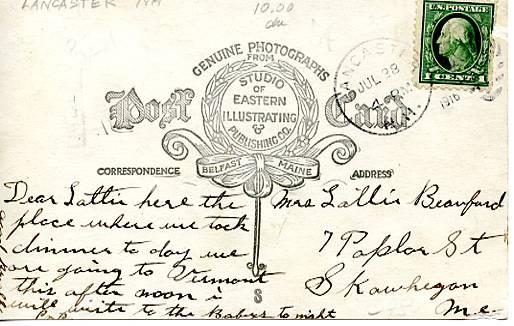 LANCASTER NH
10.00
U.S. POSTAGE
1 CENT 1
LANCASTER
JUL 28
4 PM
1916
N.H.
GENUINE PHOTOGRAPHS
FROM
STUDIO
OF
EASTERN
ILLUSTRATING
&
PUBLISHING CO.
Post Card
BELFAST MAINE
CORRESPONDENCE
ADDRESS
Dear Lattie here the
place where we took
dinner to day we
are going to Vermont
this after noon i
will write to the Babes to night
Mrs Lallie Beauford
7 Poplar St
Skowhegan
Me.
S